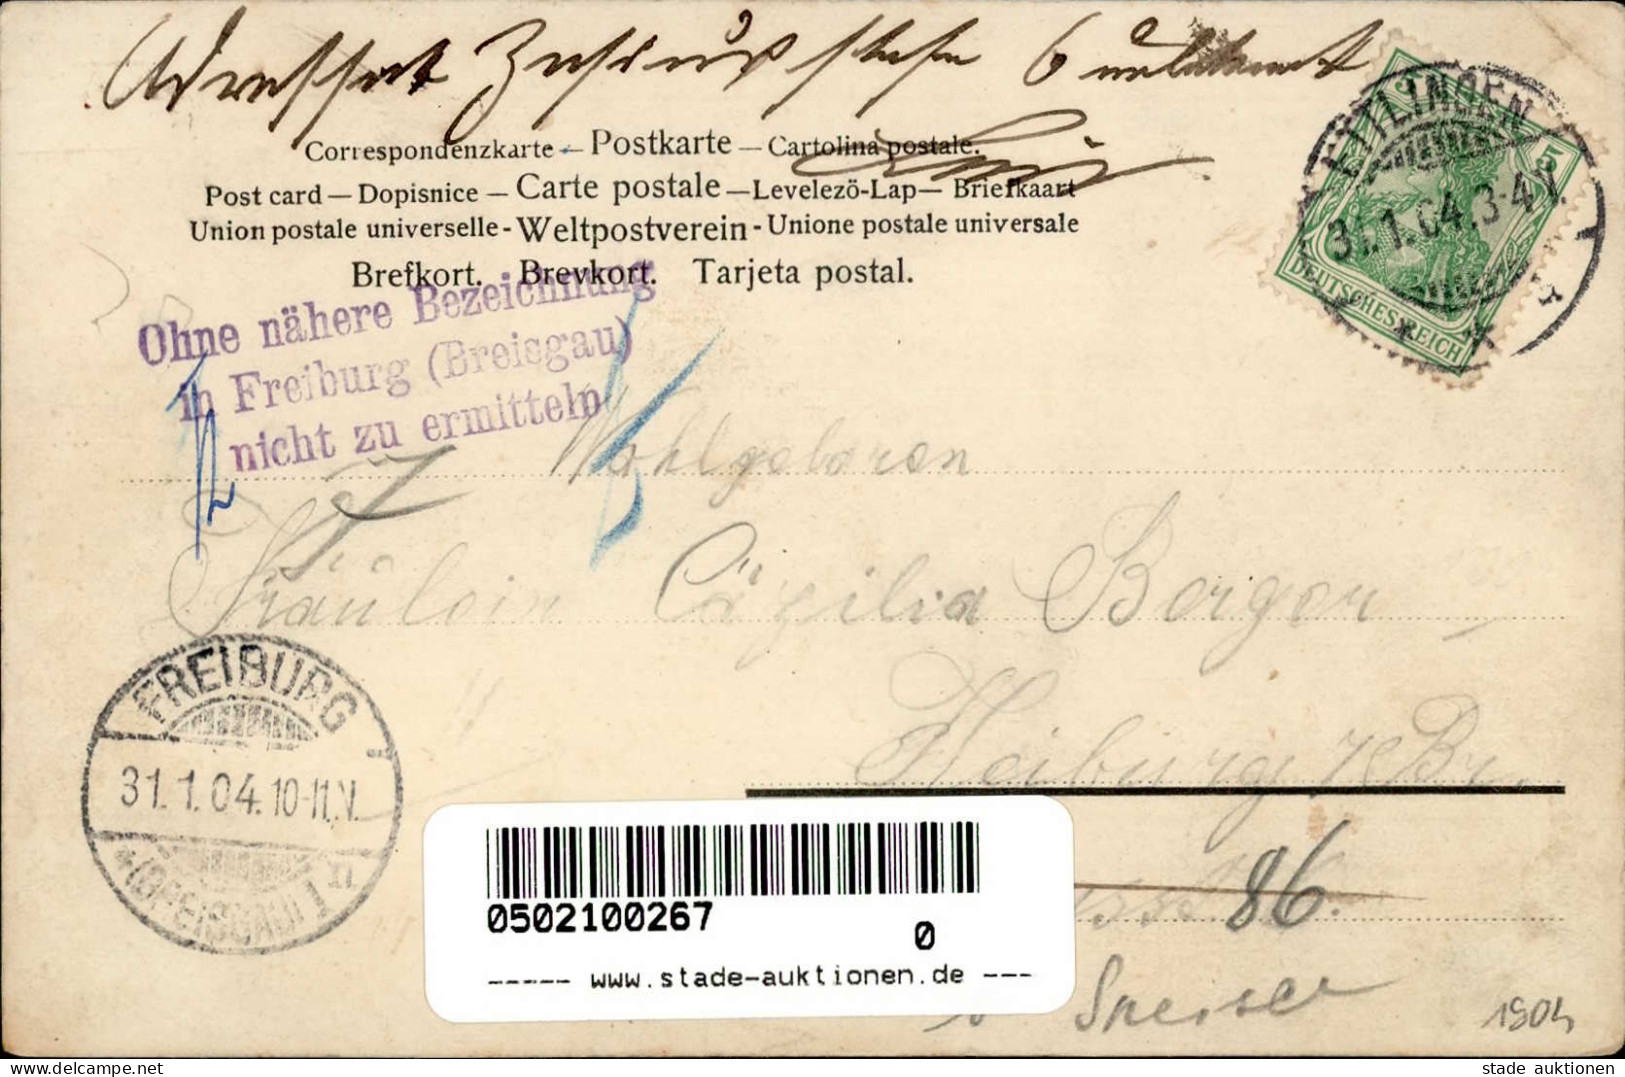 Correspondenzkarte – Postkarte – Cartolina postale.
Post card – Dopisnice – Carte postale – Levelezö-Lap – Briefkaart
Union postale universelle - Weltpostverein - Unione postale universale
Brefkort. Brevkort. Tarjeta postal.
ETTLINGEN
31.1.04.3-4N.
5
DEUTSCHES REICH
Ohne nähere Bezeichnung
in Freiburg (Breisgau)
nicht zu ermitteln
Wohlgeboren
Fräulein Cäzilia Berger
Freiburg i/Br.
86.
FREIBURG
31.1.04.10-11.V.
(BREISGAU)
0502100267
0
----- www.stade-auktionen.de ---
1904
stade auktionen